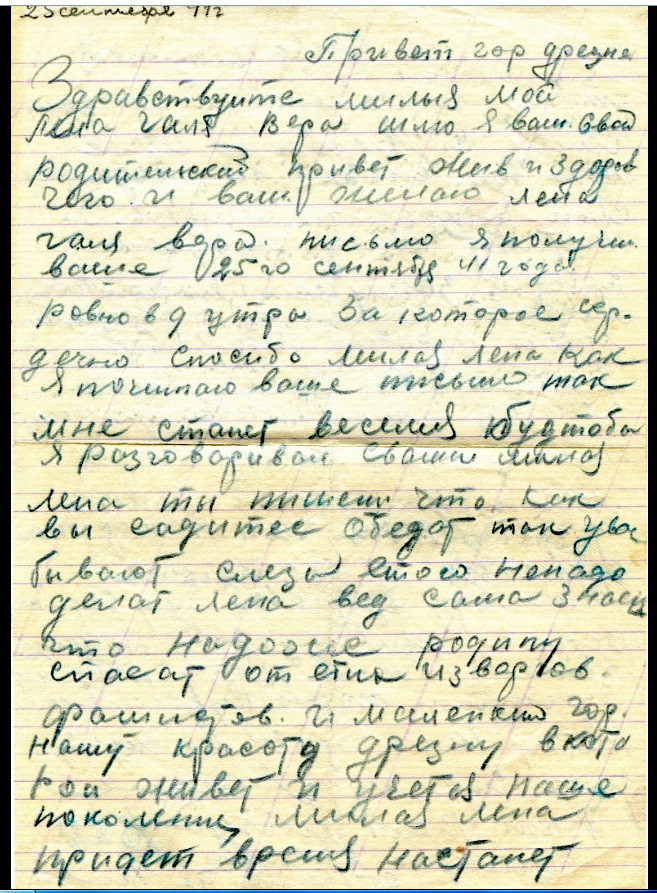 25 сентября 41 г
Привет гор дрезне
Здравствуите милыя мои
Лена Галя Вера шлю я вам свой
родительский привет жив и здоров
чего и вам желаю лена
галя вера. письмо я получил
ваше 25 го сентября 41 года.
ровно в 9 утра за которое сер-
дечно спосибо милая лена как
я почитаю ваше письмо так
мне станет веселия будтобы
я разговариваю свами милая
лена ты пишеш что как
вы садитес обедат так у вас
бывают слезы етого ненадо
делат лена вед сама знаеш
что надоже родину
спасат от етих извергов.
фашистов. и маленкию гор.
нашу красоту дрезну в кото
рои живет и учетея наше
поколение, милая лена
придет время настанет